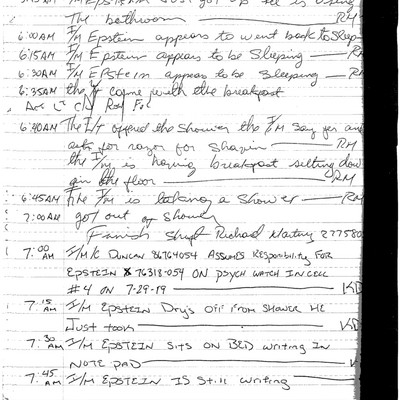 The bathroom — RM
6:00AM I/M Epstein appears to went back to sleep
6:15AM I/M Epstein appears to be sleeping — RM
6:30AM I/M Epstein appears to be sleeping — RM
6:35AM the come with the breakfast
6:40AM The offered the shower the I/M say yes and
ask for razor for shavin — RM
the I/M is having breakfast sitting dow
on the floor — RM
6:45AM The I/M is taking a shower — RM
7:00AM got out of shower
Finish Shift Richard 277580
7:00 AM I/M K Duncan 86764054 ASSUMES RESponsibility FOR
EPSTEIN 76318-054 ON PSYCH WATCH IN CELL
#4 ON 7-29-19 — KD
7:15 AM I/M EPSTEIN Drys OFF FROM SHOWER HE
Just took — KD
7:30 AM I/M EPSTEIN SITS ON BED WRITING IN
NOTE PAD — K
7:45 AM I/M EPSTEIN IS Still WRITING —